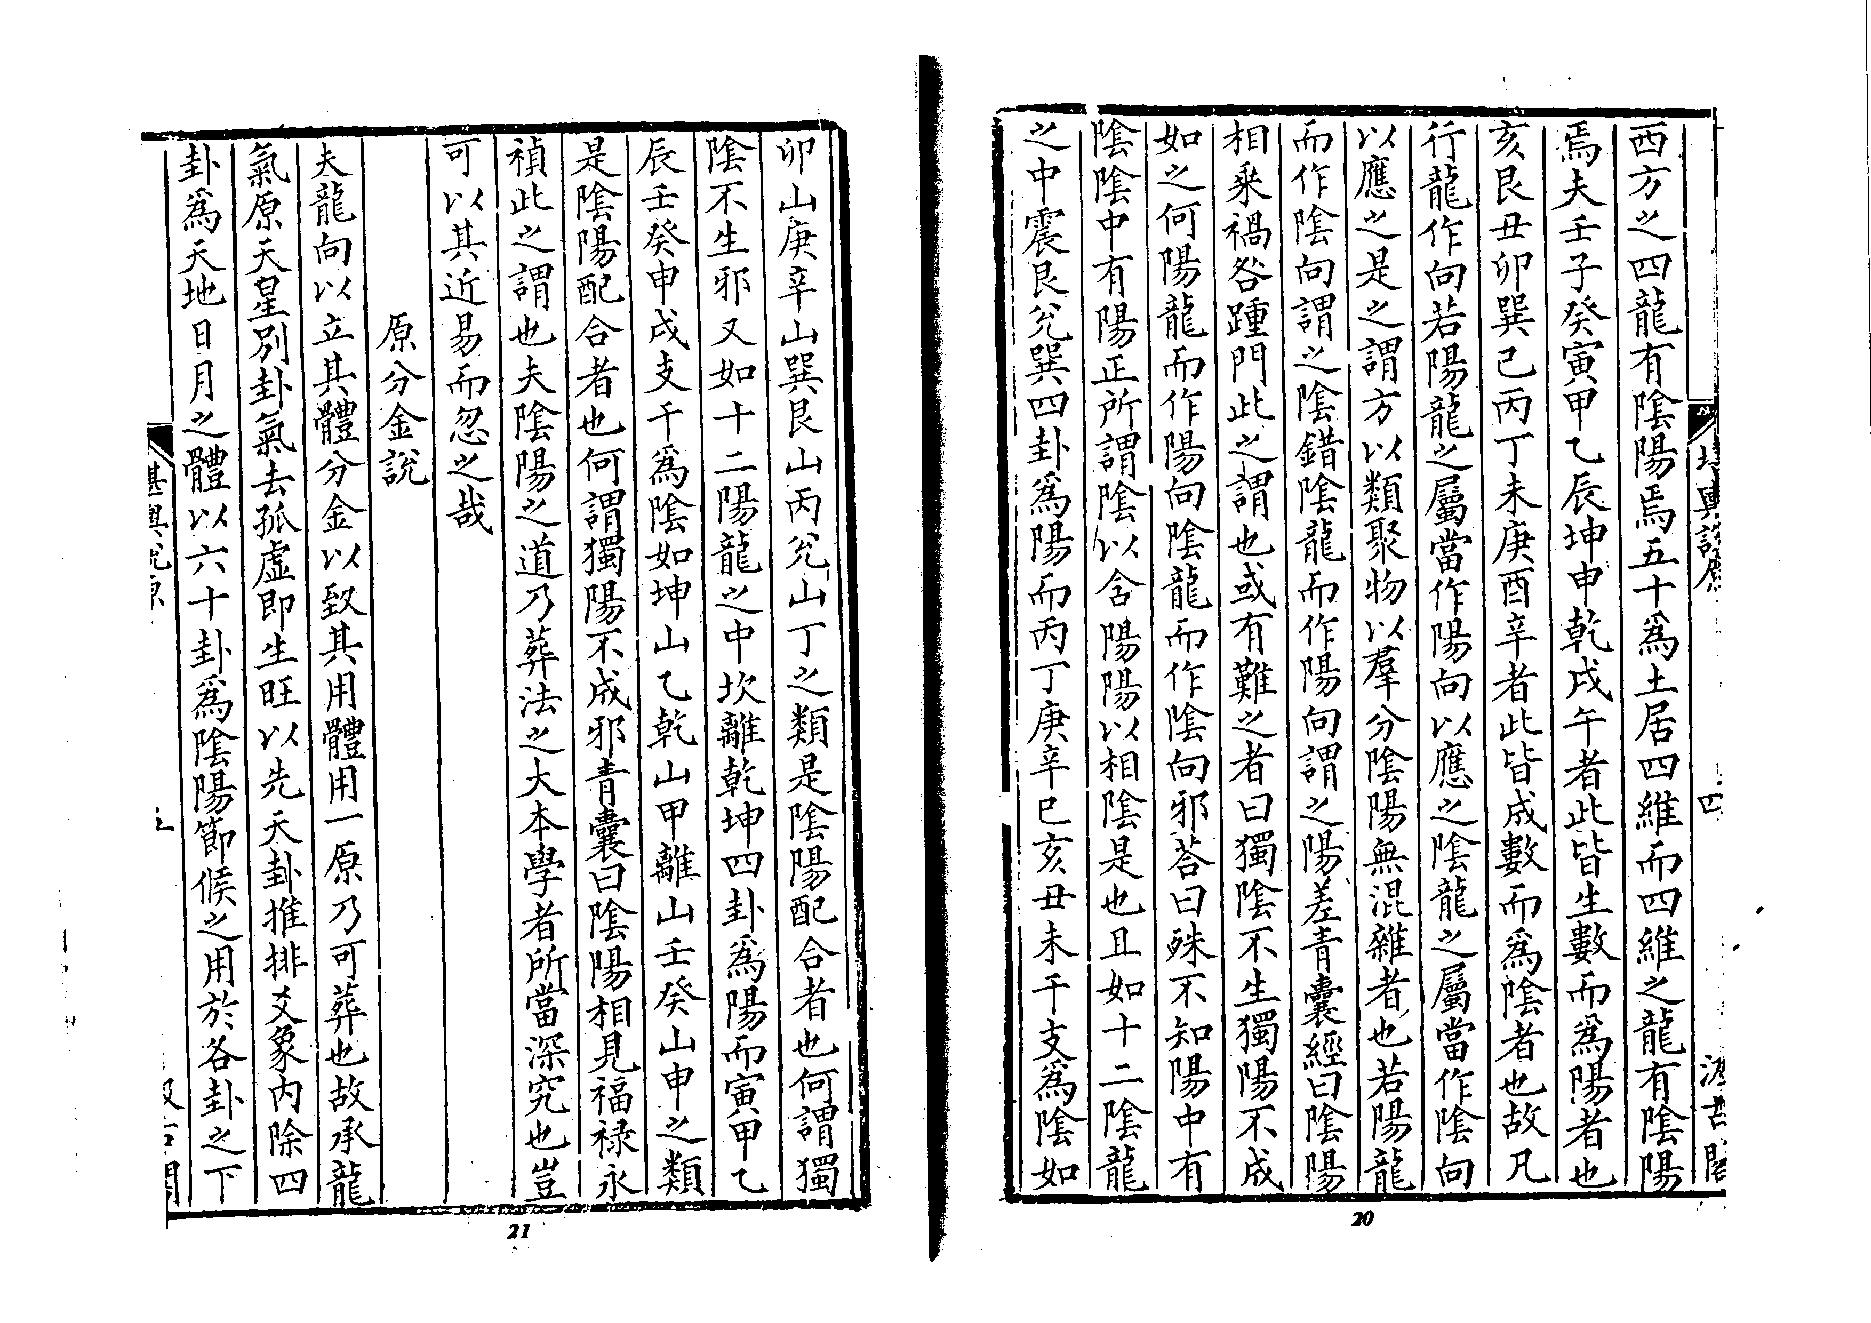 西方之四龍有陰陽焉五十爲土居四維而四維之龍有陰陽
焉夫壬子癸寅甲乙辰坤申乾戌午者此皆生數而爲陽者也
亥艮丑卯巽巳丙丁未庚酉辛者此皆成數而爲陰者也故凡
行龍作向若陽龍之屬當作陽向以應之陰龍之屬當作陰向
以應之是之謂方以類聚物以羣分陰陽無混雜者也若陽龍
而作陰向謂之陰錯陰龍而作陽向謂之陽差青囊經曰陰陽
相乘禍咎踵門此之謂也或有難之者曰獨陰不生獨陽不成
如之何陽龍而作陽向陰龍而作陰向邪荅曰殊不知陽中有
陰陰中有陽正所謂陰以含陽陽以相陰是也且如十二陰龍
之中震艮兊巽四卦爲陽而丙丁庚辛巳亥丑未干支爲陰如
20
卯山庚辛山巽艮山丙兊山丁之類是陰陽配合者也何謂獨
陰不生邪又如十二陽龍之中坎離乾坤四卦爲陽而寅甲乙
辰壬癸申戌支干爲陰如坤山乙乾山甲離山壬癸山申之類
是陰陽配合者也何謂獨陽不成邪青囊曰陰陽相見福祿永
禎此之謂也夫陰陽之道乃葬法之大本學者所當深究也豈
可以其近易而忽之哉
原分金說
夫龍向以立其體分金以致其用體用一原乃可葬也故承龍
氣原天星別卦氣去孤虛即生旺以先天卦推排爻象內除四
卦爲天地日月之體以六十卦爲陰陽節候之用於各卦之下
堪輿說原
21